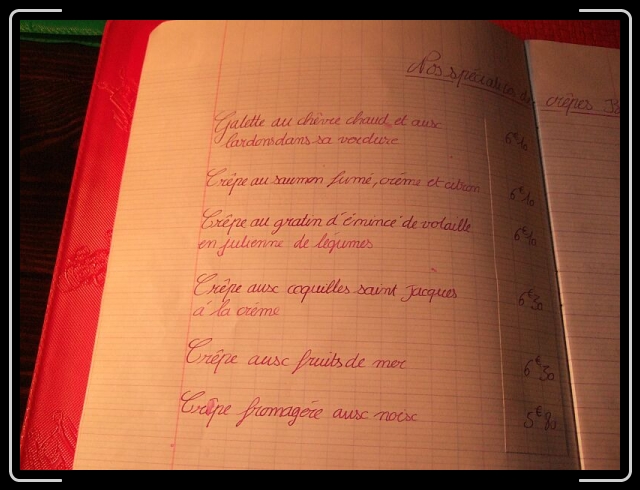 Nos spécialités de crêpes
Galette au chèvre chaud et aux
lardons dans sa verdure 6€10
Crêpe au saumon fumé, crème et citron 6€10
Crêpe au gratin d'émincé de volaille
en julienne de légumes 6€10
Crêpe aux coquilles saint Jacques
à la crème 6€30
Crêpe aux fruits de mer 6€30
Crêpe fromagère aux noix 5€80